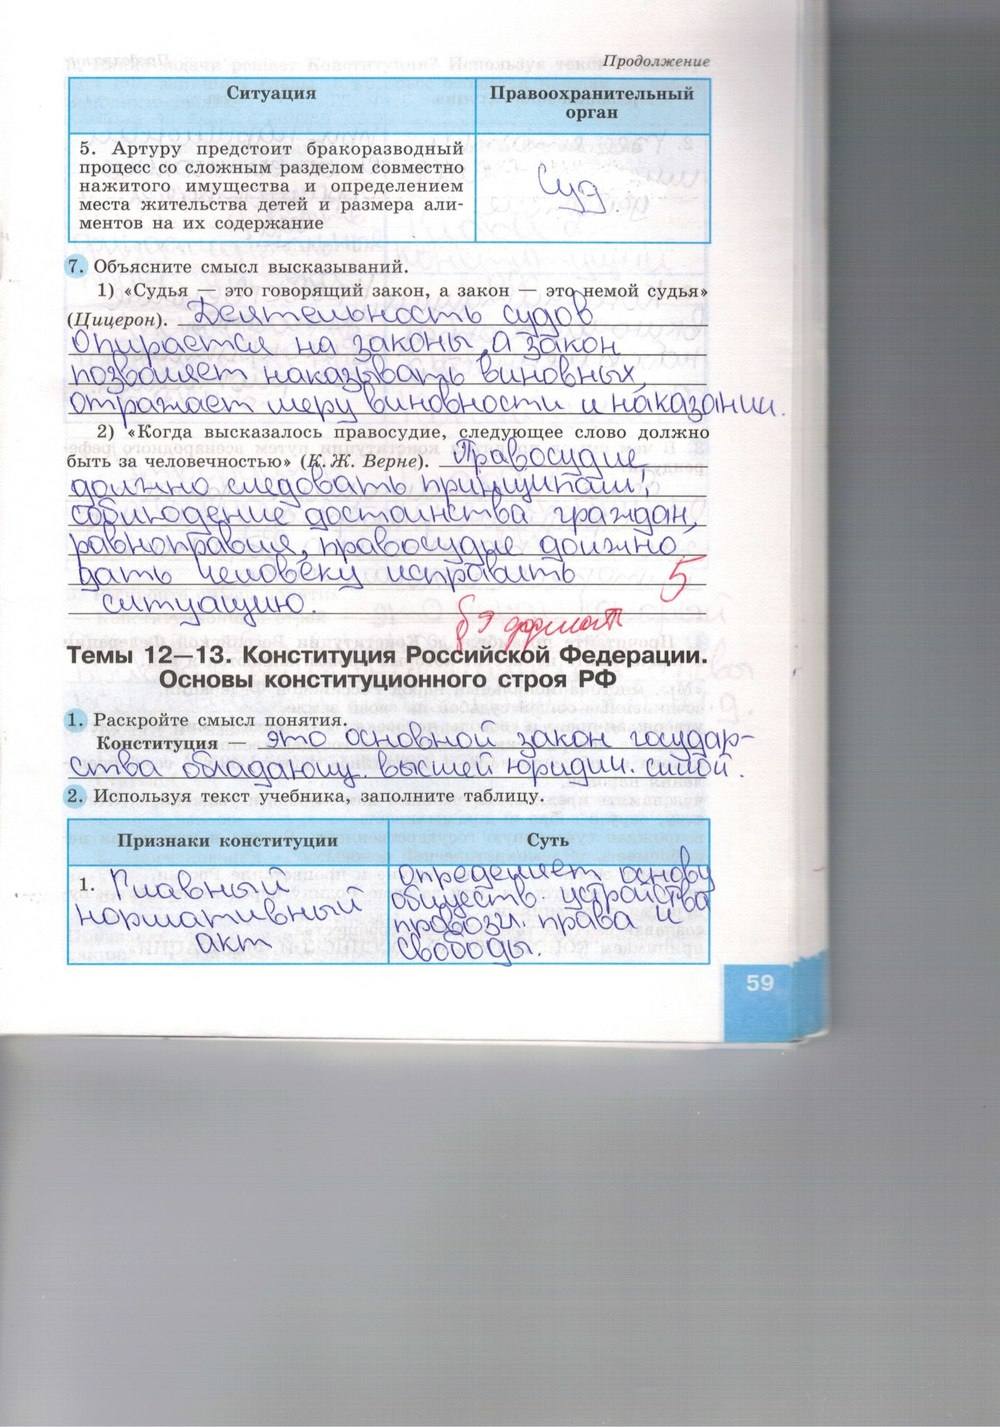 Продолжение
Ситуация
Правоохранительный
орган
5. Артуру предстоит бракоразводный
процесс со сложным разделом совместно
нажитого имущества и определением
места жительства детей и размера али-
ментов на их содержание
Суд.
7. Объясните смысл высказываний.
1) «Судья — это говорящий закон, а закон — это немой судья»
(Цицерон). Деятельность судов
опирается на законы, а закон
позволяет наказывать виновных,
отражает меру виновности и наказании.
2) «Когда высказалось правосудие, следующее слово должно
быть за человечностью» (К. Ж. Верне). Правосудие,
должно следовать принципам:
соблюдение достоинства граждан,
равноправия, правосудие должно
дать человеку исправить
ситуацию.
5
Темы 12—13. Конституция Российской Федерации.
Основы конституционного строя РФ
1. Раскройте смысл понятия.
Конституция — это основной закон государ-
ства обладающ. высшей юридич. силой.
2. Используя текст учебника, заполните таблицу.
Признаки конституции
Суть
1. Главный
нормативный
акт
определяет основу
обществ. устройства
провозгл. права и
свободы.
59